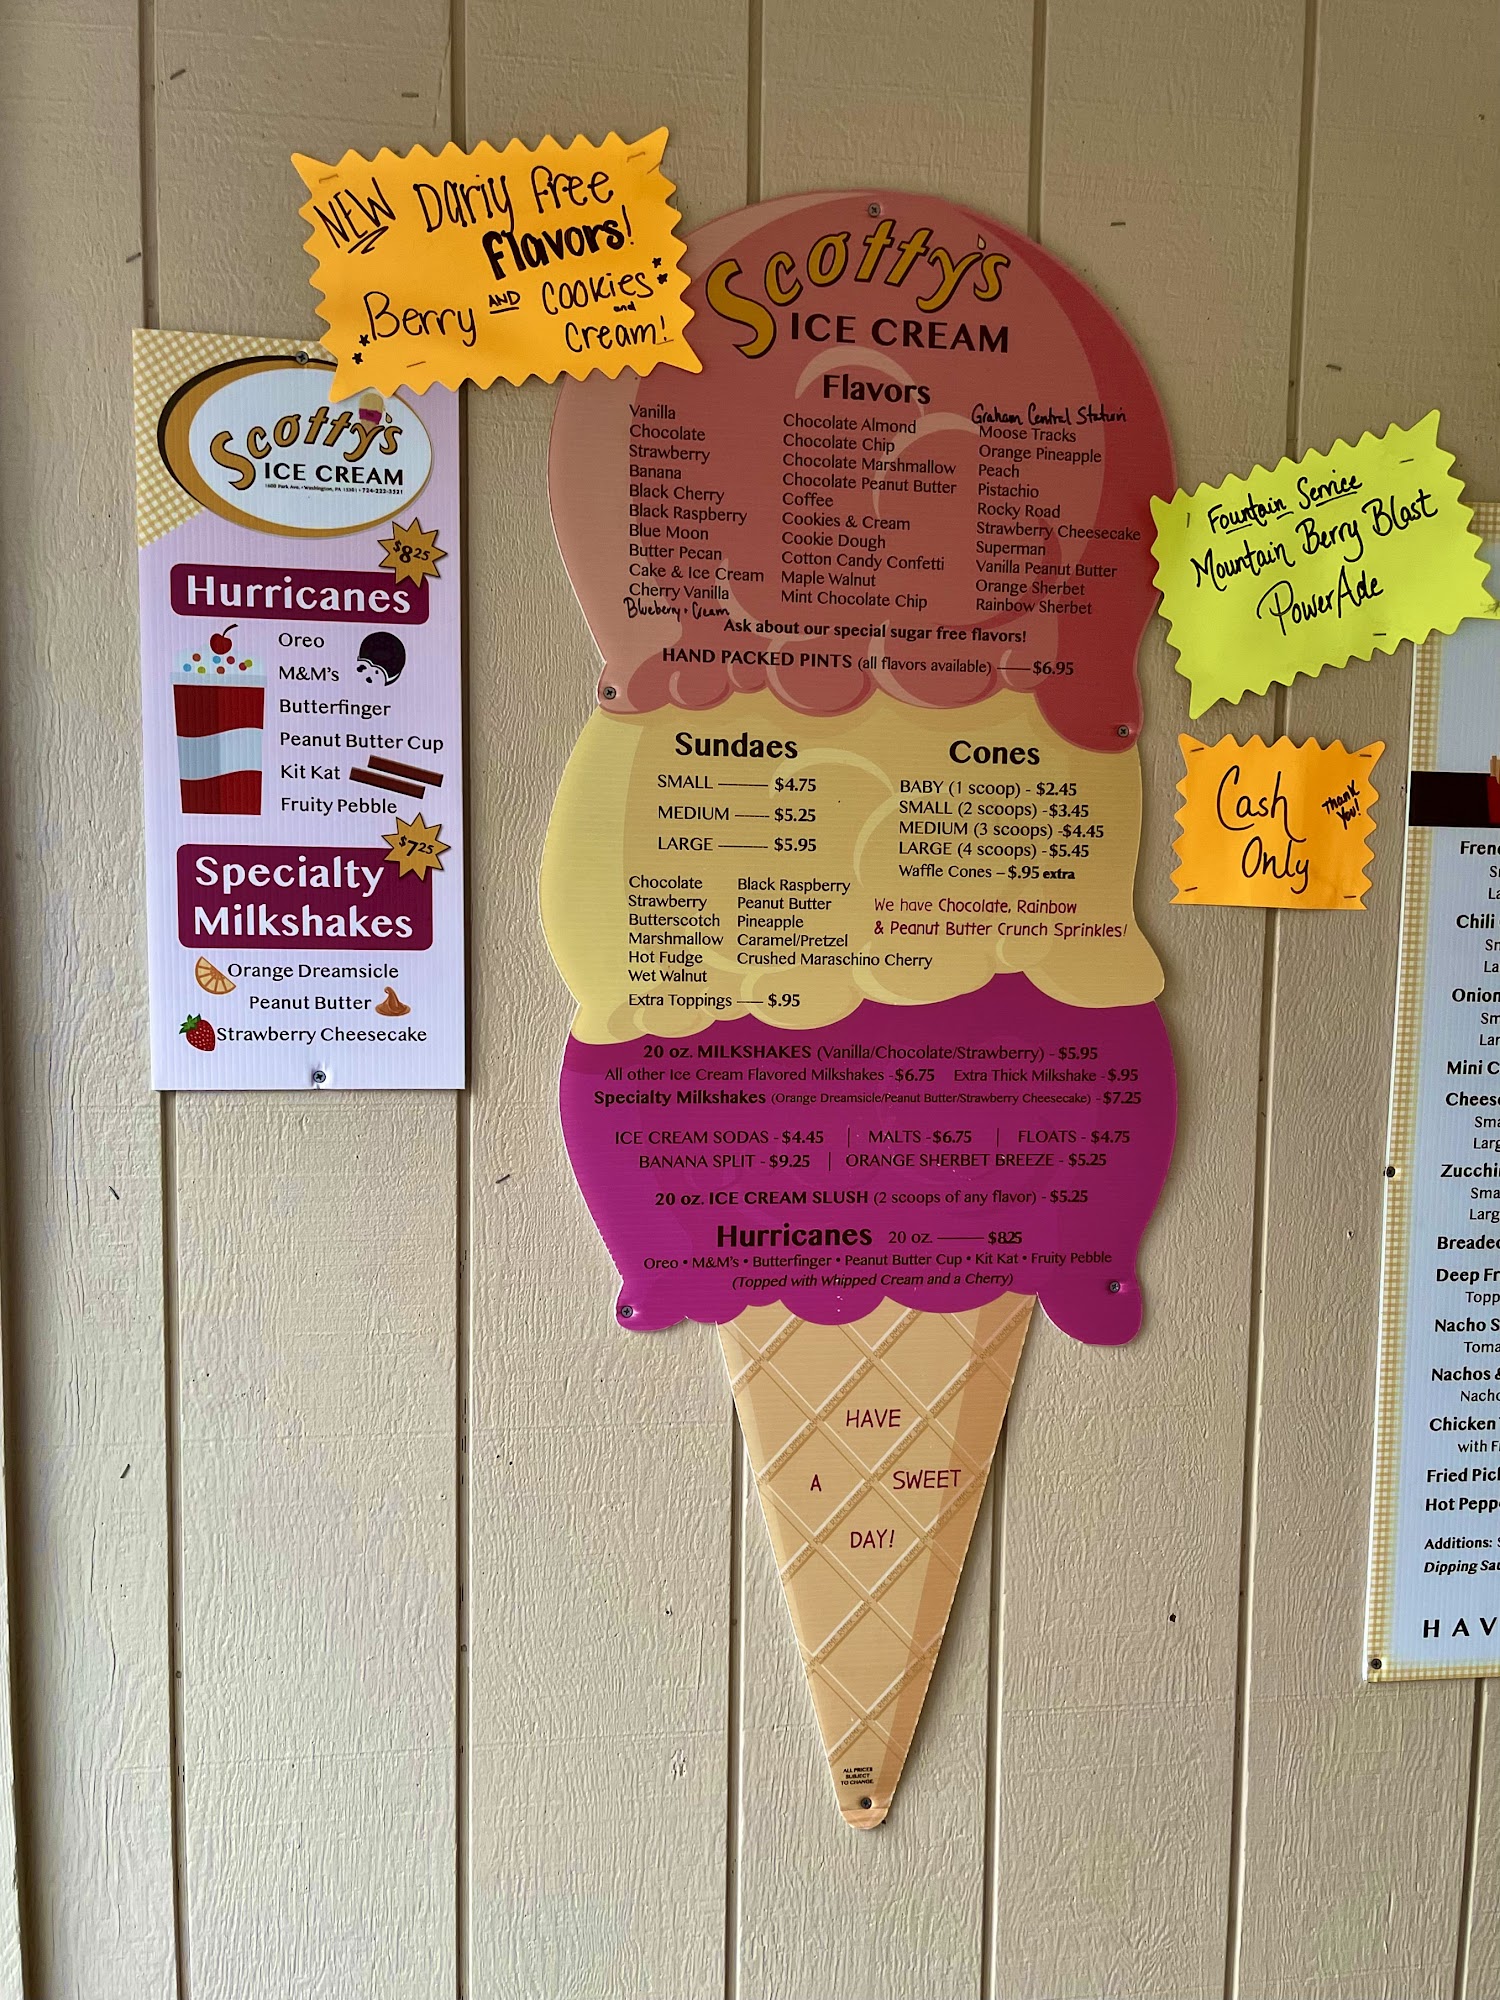 NEW Dariy free
flavors!
Berry AND Cookies
and
Cream!
Scotty's
ICE CREAM
1600 Park Ave. • Washington, PA 15301 • 724-222-2521
$8.25
Hurricanes
Oreo
M&M's
Butterfinger
Peanut Butter Cup
Kit Kat
Fruity Pebble
$7.25
Specialty
Milkshakes
Orange Dreamsicle
Peanut Butter
Strawberry Cheesecake
Scotty's
ICE CREAM
Flavors
Vanilla
Chocolate
Strawberry
Banana
Black Cherry
Black Raspberry
Blue Moon
Butter Pecan
Cake & Ice Cream
Cherry Vanilla
Blueberry + Cream
Chocolate Almond
Chocolate Chip
Chocolate Marshmallow
Chocolate Peanut Butter
Coffee
Cookies & Cream
Cookie Dough
Cotton Candy Confetti
Maple Walnut
Mint Chocolate Chip
Graham Central Station
Moose Tracks
Orange Pineapple
Peach
Pistachio
Rocky Road
Strawberry Cheesecake
Superman
Vanilla Peanut Butter
Orange Sherbet
Rainbow Sherbet
Ask about our special sugar free flavors!
HAND PACKED PINTS (all flavors available) —— $6.95
Sundaes
SMALL ——— $4.75
MEDIUM —— $5.25
LARGE ——— $5.95
Chocolate
Strawberry
Butterscotch
Marshmallow
Hot Fudge
Wet Walnut
Black Raspberry
Peanut Butter
Pineapple
Caramel/Pretzel
Crushed Maraschino Cherry
Extra Toppings —— $.95
Cones
BABY (1 scoop) - $2.45
SMALL (2 scoops) -$3.45
MEDIUM (3 scoops) -$4.45
LARGE (4 scoops) -$5.45
Waffle Cones – $.95 extra
We have Chocolate, Rainbow
& Peanut Butter Crunch Sprinkles!
20 oz. MILKSHAKES (Vanilla/Chocolate/Strawberry) - $5.95
All other Ice Cream Flavored Milkshakes -$6.75 Extra Thick Milkshake - $.95
Specialty Milkshakes (Orange Dreamsicle/Peanut Butter/Strawberry Cheesecake) - $7.25
ICE CREAM SODAS - $4.45 | MALTS -$6.75 | FLOATS - $4.75
BANANA SPLIT - $9.25 | ORANGE SHERBET BREEZE - $5.25
20 oz. ICE CREAM SLUSH (2 scoops of any flavor) - $5.25
Hurricanes 20 oz. ——— $8.25
Oreo • M&M's • Butterfinger • Peanut Butter Cup • Kit Kat • Fruity Pebble
(Topped with Whipped Cream and a Cherry)
HAVE
A SWEET
DAY!
ALL PRICES
SUBJECT
TO CHANGE
Fountain Service
Mountain Berry Blast
PowerAde
Cash
Only
Thank
You!
Frenc
Sm
La
Chili
Sm
La
Onion
Sm
Lar
Mini C
Cheese
Sma
Larg
Zucchi
Sma
Larg
Breaded
Deep Fr
Topp
Nacho S
Toma
Nachos &
Nacho
Chicken
with F
Fried Pic
Hot Pepp
Additions:
Dipping Sau
HAV